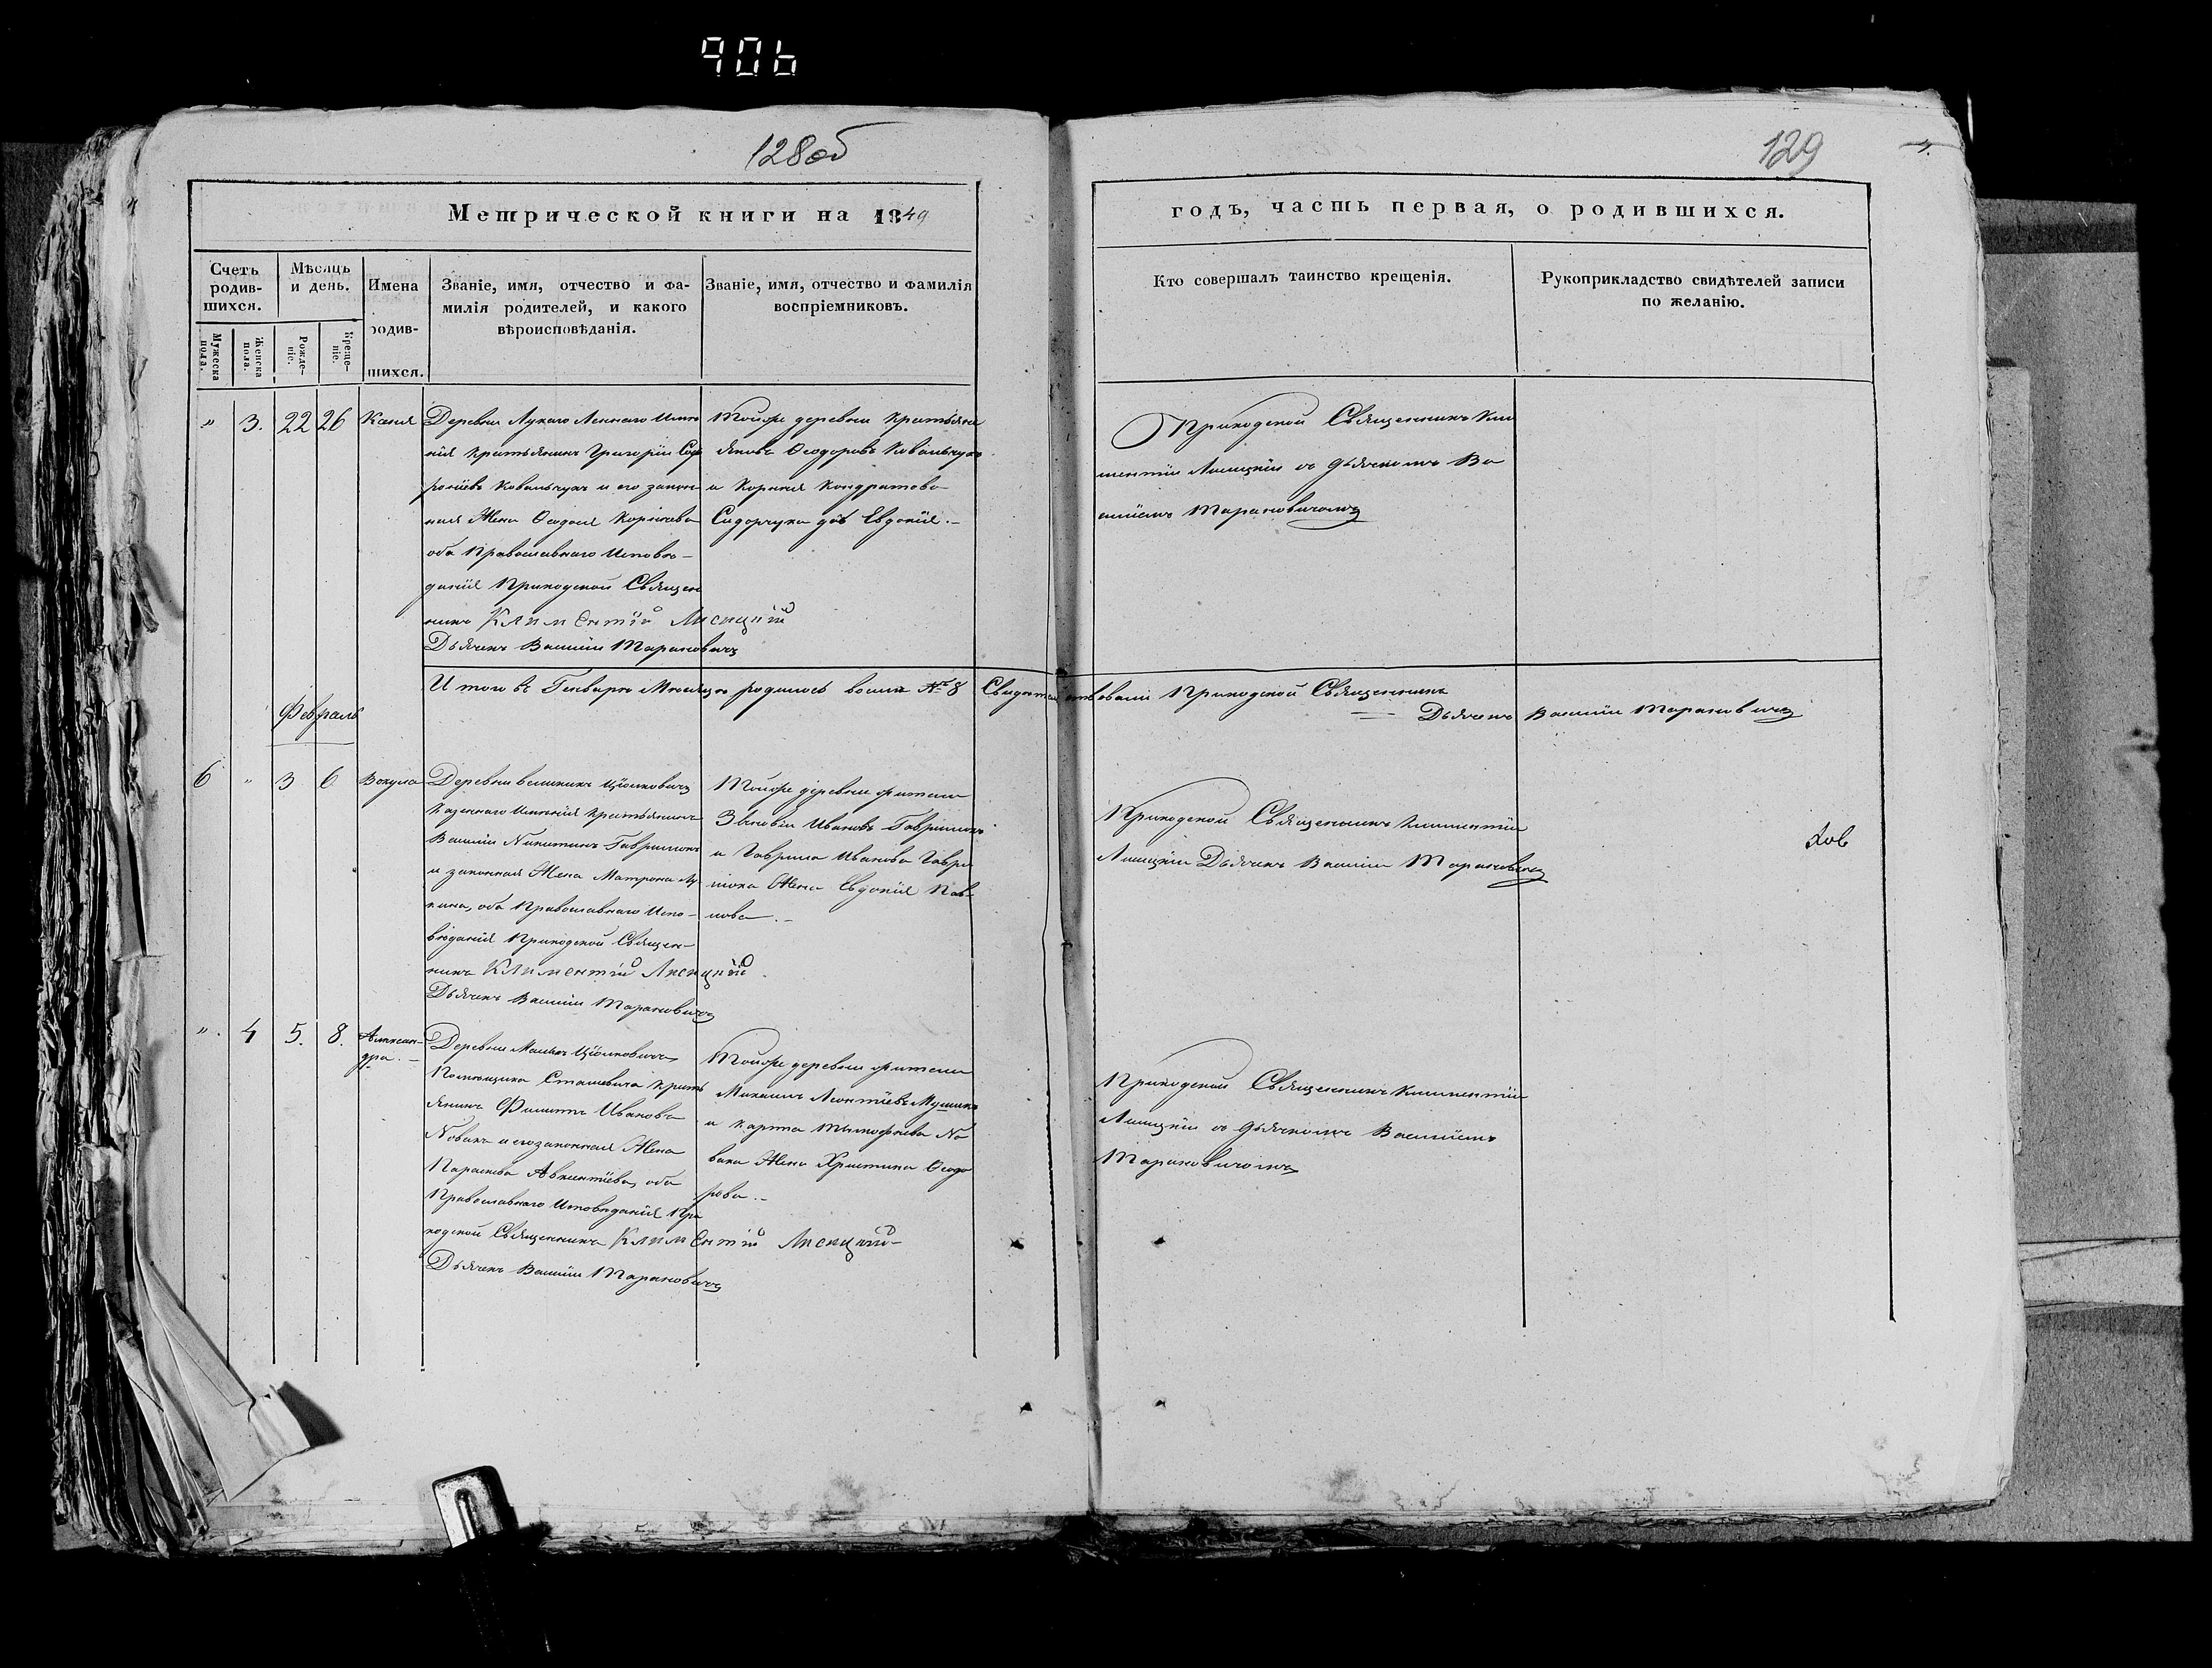 906
128об
129
Метрической книги на 1849
годъ, часть первая, о родившихся.
Счетъ родив-шихся.
Мѣсяцъ и день.
Имена родив-шихся.
Званіе, имя, отчество и фа-
милія родителей, и какого
вѣроисповѣданія.
Званіе, имя, отчество и фамилія
воспріемниковъ.
Кто совершалъ таинство крещенія.
Рукоприкладство свидѣтелей записи
по желанію.
Мужеска пола.
Женска пола.
Рожде-ніе.
Креще-ніе.
" 3. 22 26 Ксенія
Деревни
нія крестьянинъ Григорій
Ковальчукъ и его закон-
ная Жена Ѳеодосія Корнѣева
оба Православнаго Исповѣ-
данія Приходской Священ
никъ Климентій Лисицкій
Дьячекъ Василій Тарановичъ
Тойже деревни крестьяне
Яковъ Ѳеодоровъ Ковальчукъ
и Корнія Кондратова
Сидорчука дочь Евдокія.-
Приходской Священникъ Кли
ментій Лисицкій съ дьячкомъ Ва
силіемъ Тарановичомъ
Итого въ Генварѣ Мѣсяцѣ родилось восемь № 8 Свидѣтельствовали Приходской Священникъ
Дьячекъ Василій Тарановичъ
Февраль
6 " 3 6 Вакула
Деревни Великихъ Цѣпковичъ
Казеннаго Имѣнія крестьянинъ
Василій Никитинъ Гаврилюкъ
и законная Жена Матрона Лу
кина, оба Православнаго Испо-
вѣданія Приходской Священ-
никъ Климентій Лисицкій
Дьячекъ Василій Тарановичъ
Тойже деревни жители
Зѣновій Ивановъ Гаврилюкъ
и Гаврила Иванова Гаври
люка Жена Евдокія Пав-
лова.-
Приходской Священникъ Климентій
Лисицкій Дьячекъ Василій Тарановичъ
". 4 5. 8. Алексан-
дра.-
Деревни Малыхъ Цѣпковичъ
Помѣщика Сташевича крест
янинъ Филиппъ Ивановъ
Новакъ и его законная Жена
Параскева Авксентіева, оба
Православнаго Исповѣданія При
ходской Священникъ Климентій Лисицкій
Дьячекъ Василій Тарановичъ
Тойже деревни жители
Михаилъ Леонтіевъ
и Карпа Тымофѣева Но
вака Жена Христина Ѳеодо
рова.-
Приходской Священникъ Климентій
Лисицкій съ дьячкомъ Василіемъ
Тарановичомъ